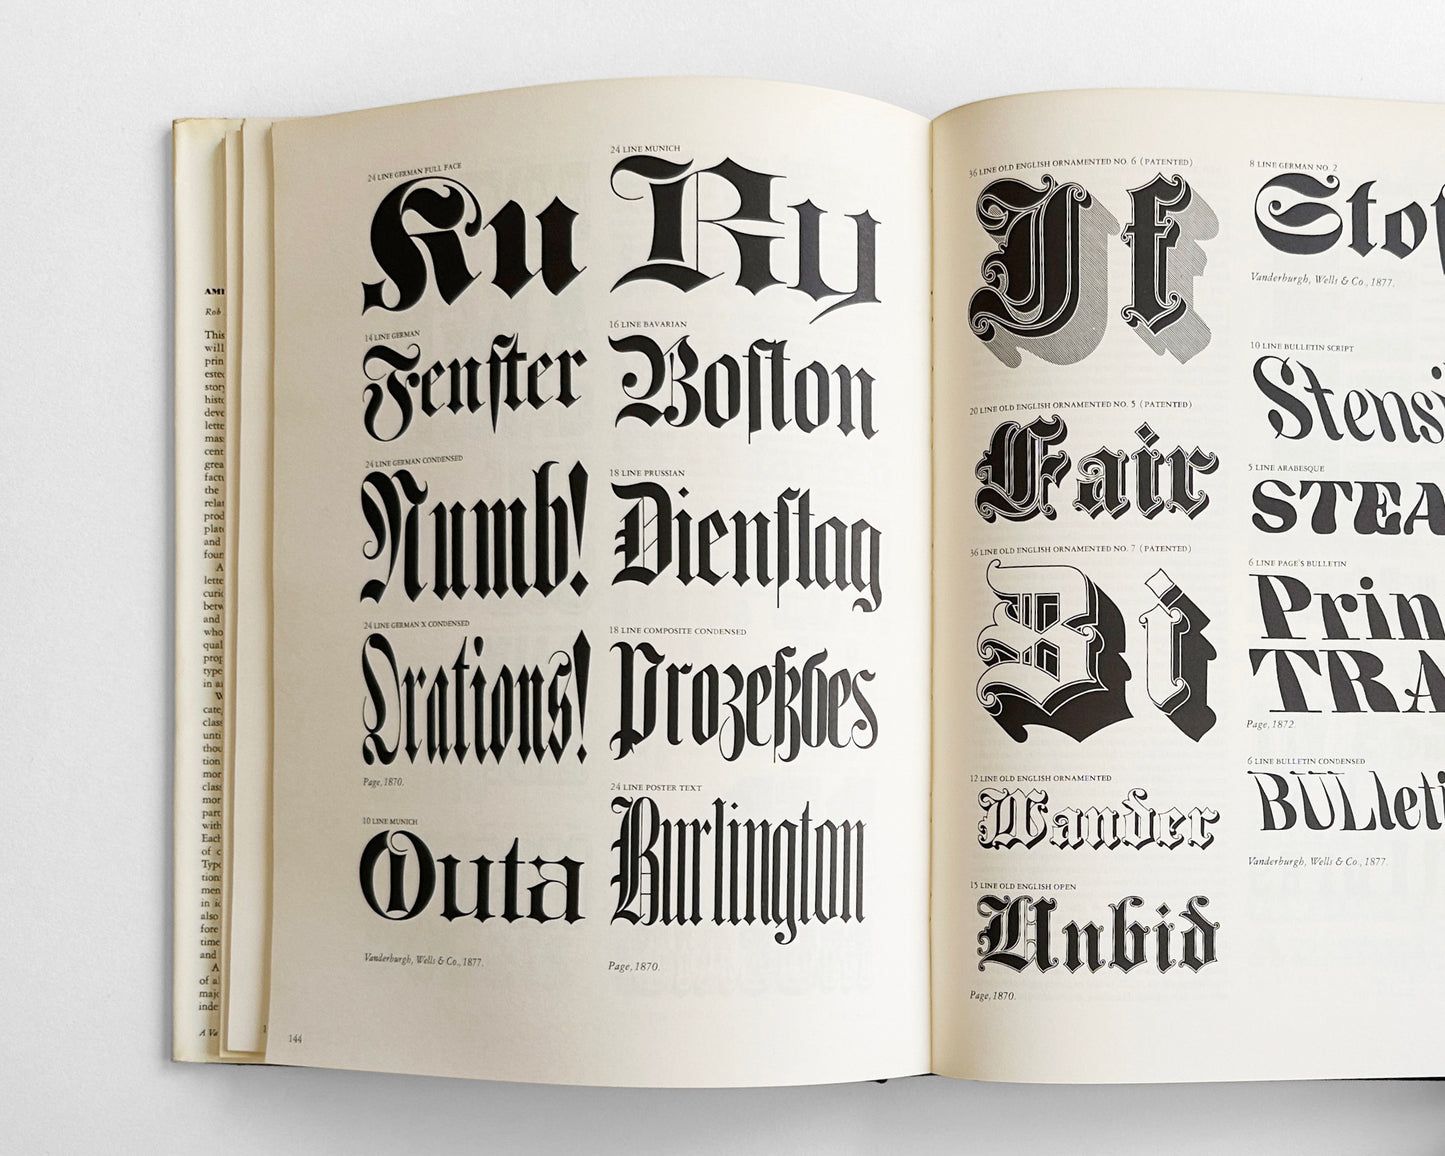 AMI
Rob
This
will
prin
este
stor
hist
deve
lette
mas
cent
grea
fact
the
relat
prod
plat
and
foun
A
lette
curi
betw
and
who
qual
prop
type
in a
W
cate
class
unti
thou
tion
mor
class
mor
part
with
Each
of c
Type
tion
men
in i
also
fore
time
and
A
of al
majo
inde
A Va
1
24 LINE GERMAN FULL FACE
Ku
14 LINE GERMAN
Fenſter
24 LINE GERMAN CONDENSED
Numb!
24 LINE GERMAN X CONDENSED
Orations!
Page, 1870.
10 LINE MUNICH
Outa
Vanderburgh, Wells & Co., 1877.
144
24 LINE MUNICH
Ry
16 LINE BAVARIAN
Boſton
18 LINE PRUSSIAN
Dienſtag
18 LINE COMPOSITE CONDENSED
Prozeßdes
24 LINE POSTER TEXT
Burlington
Page, 1870.
36 LINE OLD ENGLISH ORNAMENTED NO. 6 (PATENTED)
If
20 LINE OLD ENGLISH ORNAMENTED NO. 5 (PATENTED)
Fair
36 LINE OLD ENGLISH ORNAMENTED NO. 7 (PATENTED)
Bi
12 LINE OLD ENGLISH ORNAMENTED
Wander
15 LINE OLD ENGLISH OPEN
Unbid
Page, 1870.
8 LINE GERMAN NO. 2
Sto
Vanderburgh, Wells & Co., 1877.
10 LINE BULLETIN SCRIPT
Stensi
5 LINE ARABESQUE
STEA
6 LINE PAGE'S BULLETIN
Prin
TRA
Page, 1872.
6 LINE BULLETIN CONDENSED
BULleti
Vanderburgh, Wells & Co., 1877.